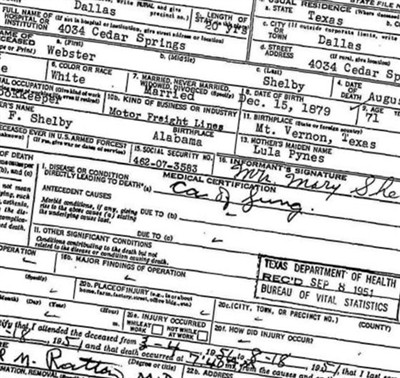 Dallas
RURAL and give
precinct no.)
LENGTH OF
20 yrs
USUAL RESIDENCE (Where
STATE
Texas
STATE FILE
FULL NAME OF
HOSPITAL OR
INSTITUTION
(If not in hospital or institution, give street address or location)
4034 Cedar Springs
CITY (If outside corporate limits, write
Dallas
d. STREET
ADDRESS
(If rural, give
4034 Cedar Sp
a. (First)
Webster
b. (Middle)
c. (Last)
Shelby
4. DATE
OF
DEATH
Augus
6. COLOR OR RACE
White
7. MARRIED, NEVER MARRIED,
WIDOWED, DIVORCED (Specify)
Married
8. DATE OF BIRTH
Dec. 15, 1879
9. AGE
71
10b. KIND OF BUSINESS OR INDUSTRY
Motor Freight Lines
11. BIRTHPLACE (State or foreign country)
Mt. Vernon, Texas
F. Shelby
BIRTHPLACE
Alabama
13. MOTHER'S MAIDEN NAME
Lula Pynes
DECEASED EVER IN U.S. ARMED FORCES?
(If yes, give war or dates of service)
15. SOCIAL SECURITY NO.
462-07-3583
16. INFORMANT'S SIGNATURE
Mrs Mary She
OF DEATH
MEDICAL CERTIFICATION
I. DISEASE OR CONDITION
DIRECTLY LEADING TO DEATH*(a)
Ca of Lung.
ANTECEDENT CAUSES
Morbid conditions, if any, giving
rise to the above cause (a) stating
the underlying cause last.
DUE TO (b)
DUE TO (c)
II. OTHER SIGNIFICANT CONDITIONS
Conditions contributing to the death but not
related to the disease or condition causing death.
OPERATION
18b. MAJOR FINDINGS OF OPERATION
TEXAS DEPARTMENT OF HEALTH
REC'D SEP 8 1951
BUREAU OF VITAL STATISTICS
(Specify)
20b. PLACE OF INJURY (e.g., in or about
home, farm, factory, street, office bldg., etc.)
20c. (CITY, TOWN, OR PRECINCT NO.)
(COUNTY)
(Month) (Day) (Year) (Hour)
20e. INJURY OCCURRED
WHILE AT
WORK
NOT WHILE
AT WORK
20f. HOW DID INJURY OCCUR?
that I attended the deceased from 3-4
8-18 1951, that I last
and that death occurred at
(Degree or title)
22b. ADDRESS